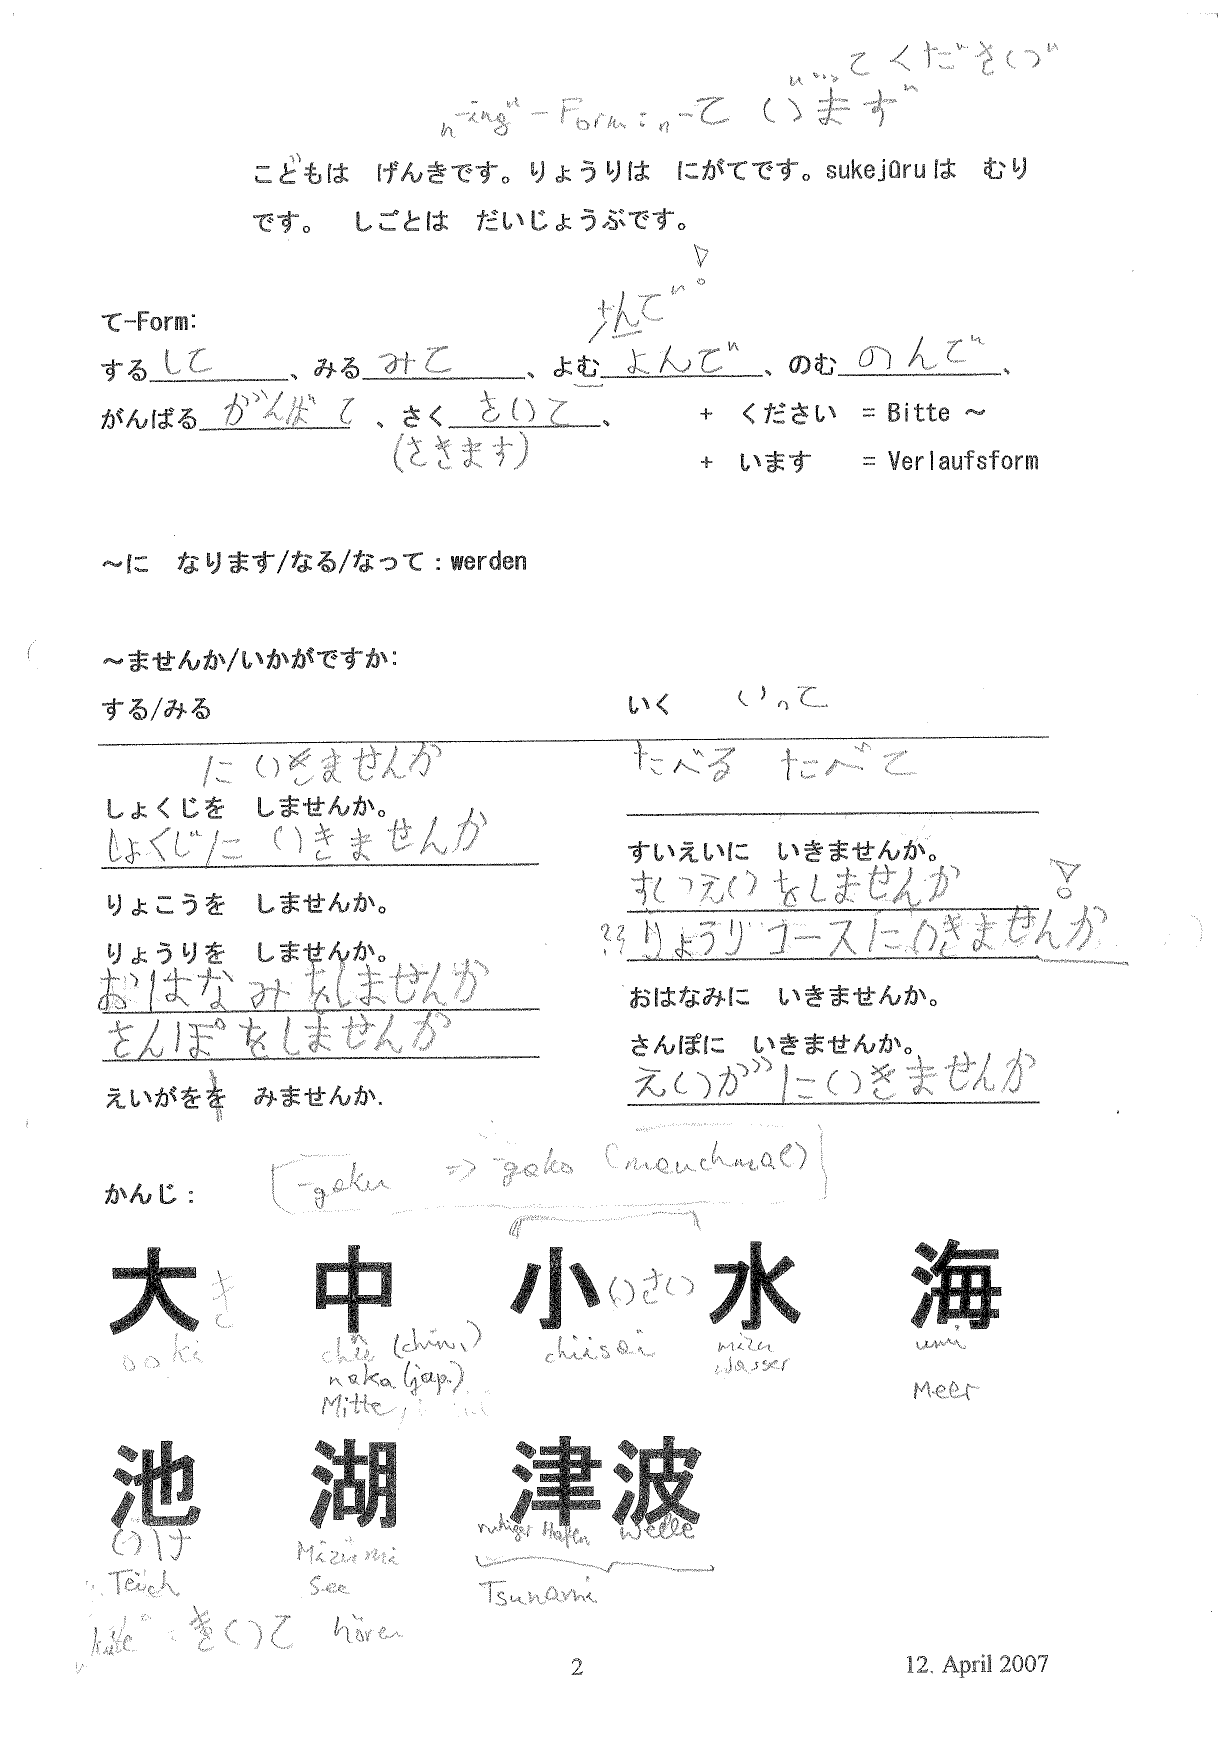 "...てください"
"-ing"-Form: "-て います"
こどもは　げんきです。りょうりは　にがてです。sukejūruは　むり
です。　しごとは　だいじょうぶです。
て-Form:
+んで"!
する して 、みる みて 、よむ よんで 、のむ のんで 、
がんばる がんばて 、さく さいて 、 + ください = Bitte ～
(さきます) + います = Verlaufsform
～に　なります/なる/なって：werden
～ませんか/いかがですか:
する/みる いく いって
に いきませんか たべる たべて
しょくじを　しませんか。
しょくじに いきませんか すいえいに　いきませんか。
すいえいをしませんか
りょこうを　しませんか。
?? りょうりコースにいきませんか
りょうりを　しませんか。
おはなみをしませんか おはなみに　いきませんか。
さんぽをしませんか さんぽに　いきませんか。
えいがをを　みませんか. えいがにいきませんか
かんじ： -goku => -goko (manchmal)
大き 中 小いさい 水 海
ooki chū (chin.) chiisai mizu umi
naka (jap.) Wasser
Mitte, Meer
池 湖 津波
いけ Mizumi ruhiger Hafen Welle
Teich See Tsunami
"kiite" : きいて hören
2 12. April 2007